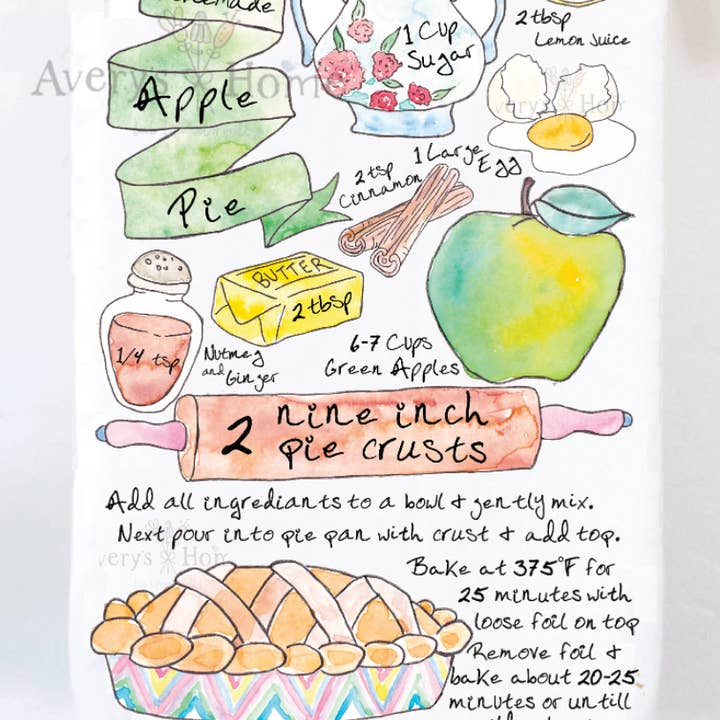 Homemade
Apple
Pie
1 Cup
Sugar
2 tbsp
Lemon Juice
1 Large
Egg
2 tsp
Cinnamon
BUTTER
2 tbsp
1/4 tsp
Nutmeg
and
Ginger
6-7 Cups
Green Apples
2 nine inch
pie crusts
Add all ingrediants to a bowl & gently mix.
Next pour into pie pan with crust & add top.
Bake at 375°F for
25 minutes with
loose foil on top
Remove foil &
bake about 20-25
minutes or untill
Avery's Home
Avery's Home
Avery's Home